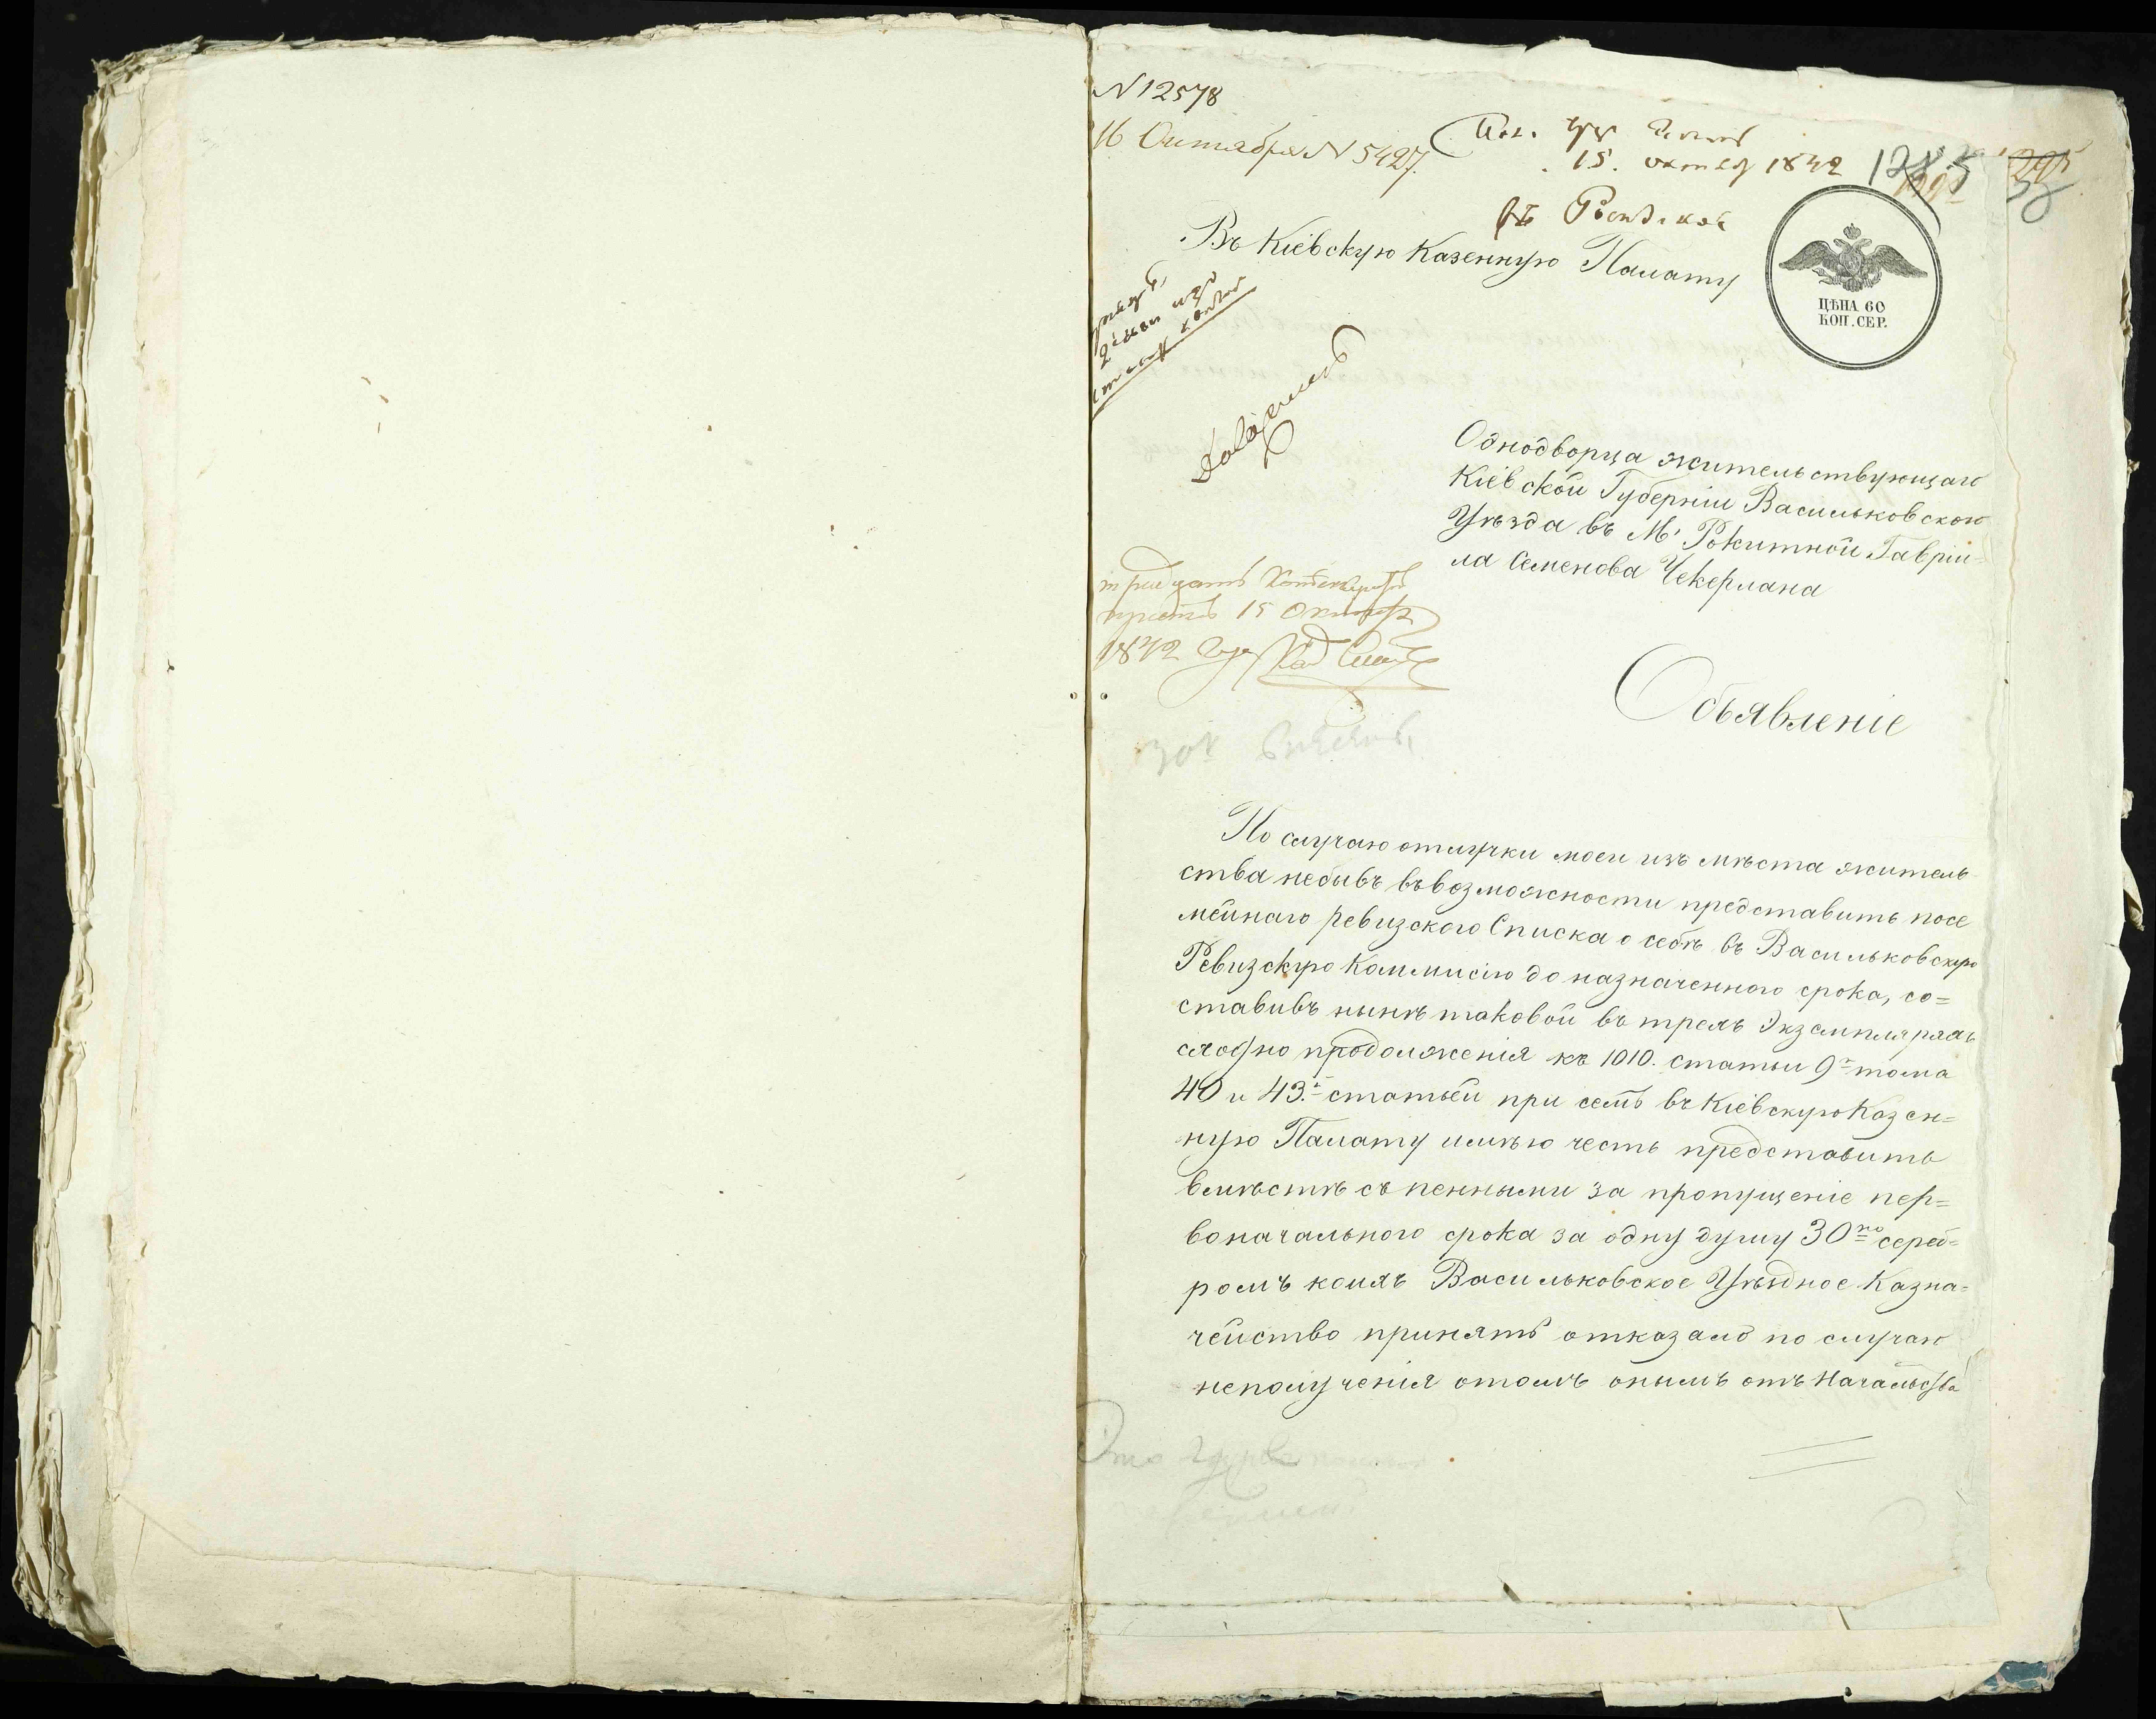 N 12578
16 Октября N 5427.
15. октяб 1842
Въ Кіевскую Казенную Палату
ЦѢНА 60
КОП. СЕР.
Однодворца жительствующаго
Кіевской Губерніи Васильковскаго
Уѣзда въ М. Рокитной Гавріи-
ла Семенова Чекермана
тридцать
15 Октяб
1842 года
Объявленіе
По случаю отлучки моей изъ мѣста житель
ства небывъ въ возможности представить посе
мейнаго ревизского Списка о себѣ въ Васильковскую
Ревизскую Коммисію до назначенного срока, со=
ставивъ нынѣ таковой въ трехъ Экземплярахъ
сходно продолженія къ 1010. статьи 9 тома
40 и 43. статьей при семъ въ Кіевскую Казен=
ную Палату имѣю честь представить
вмѣстѣ съ пенными за пропущеніе пер=
воначального срока за одну душу 30 сереб=
ромъ коихъ Васильковское Уѣздное Казна=
чейство принять отказало по случаю
неполученія отомъ онымъ отъ Начальства